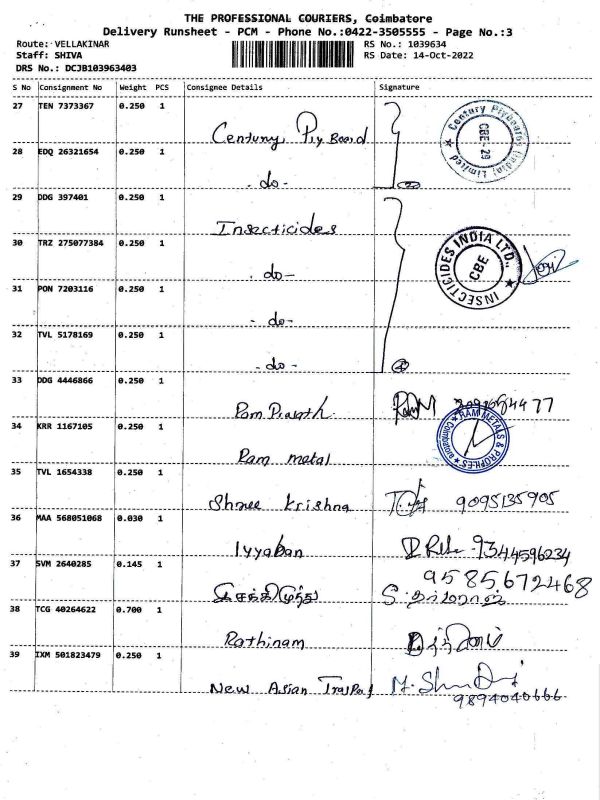 THE PROFESSIONAL COURIERS, Coimbatore
Delivery Runsheet - PCM - Phone No.:0422-3505555 - Page No.:3
Route: VELLAKINAR RS No.: 1039634
Staff: SHIVA RS Date: 14-Oct-2022
DRS No.: DCJB103963403
S No Consignment No Weight PCS Consignee Details Signature
27 TEN 7373367 0.250 1
Century Ply Board
Century Plyboards (India) Limited
CBE-29
28 EDQ 26321654 0.250 1
-do- 2
29 DDG 397401 0.250 1
Insecticides
30 TRZ 275077384 0.250 1
-do-
INSECTICIDES INDIA LTD.,
CBE
31 PON 7203116 0.250 1
-do-
32 TVL 5178169 0.250 1
-do- 4
33 DDG 4446866 0.250 1
Ram
34 KRR 1167105 0.250 1
Ram metal
RAM METALS & PROFILES
Coimbatore
35 TVL 1654338 0.250 1
Shree Krishna 9095135905
36 MAA 568051068 0.030 1
Iyyaban 9344596234
37 SVM 2640285 0.145 1
9585672468
38 TCG 40264622 0.700 1
Rathinam
39 IXM 501823479 0.250 1
New Asian
9894040666